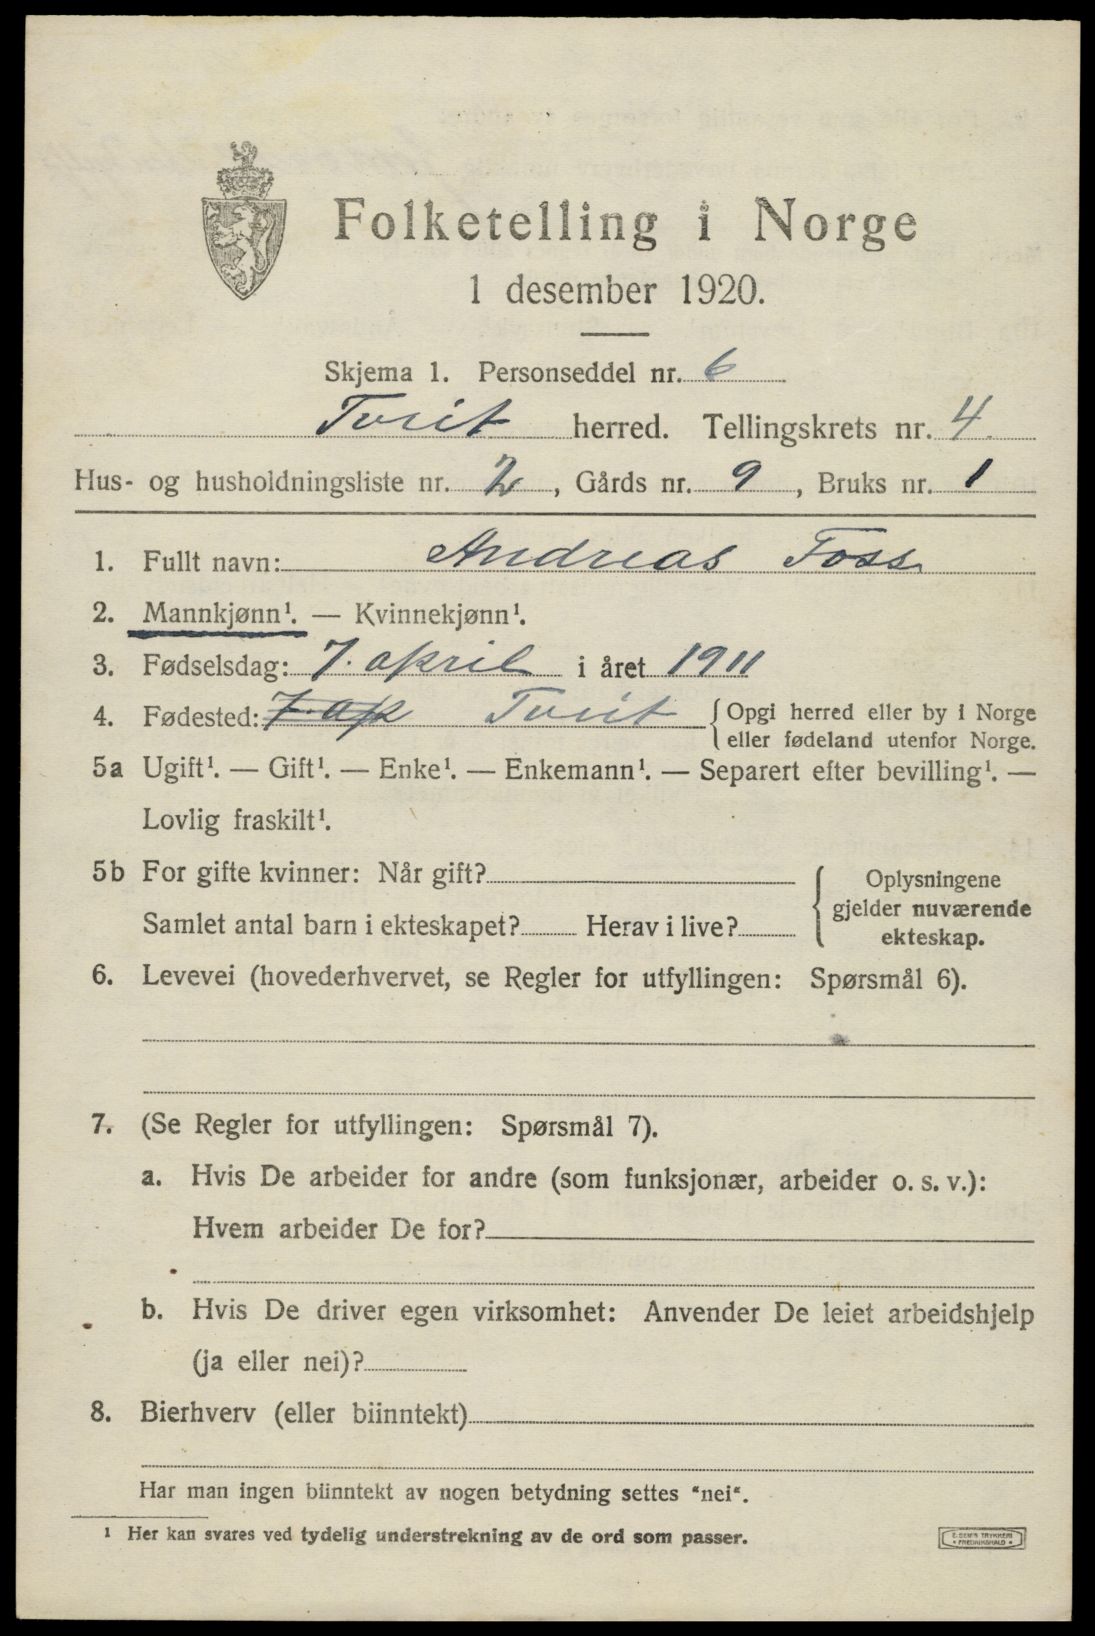 Folketelling i Norge
1 desember 1920.
Skjema 1. Personseddel nr. 6
Tveit herred. Tellingskrets nr. 4
Hus- og husholdningsliste nr. 2, Gårds nr. 9, Bruks nr. 1
1. Fullt navn: Andreas Foss
2. Mannkjønn¹. — Kvinnekjønn¹.
3. Fødselsdag: 7. april i året 1911
4. Fødested: 7. ap Tveit { Opgi herred eller by i Norge
eller fødeland utenfor Norge.
5a Ugift¹. — Gift¹. — Enke¹. — Enkemann¹. — Separert efter bevilling¹. —
Lovlig fraskilt¹.
5b For gifte kvinner: Når gift?
Samlet antal barn i ekteskapet? Herav i live?
Oplysningene
gjelder nuværende
ekteskap.
6. Levevei (hovederhvervet, se Regler for utfyllingen: Spørsmål 6).
7. (Se Regler for utfyllingen: Spørsmål 7).
a. Hvis De arbeider for andre (som funksjonær, arbeider o. s. v.):
Hvem arbeider De for?
b. Hvis De driver egen virksomhet: Anvender De leiet arbeidshjelp
(ja eller nei)?
8. Bierhverv (eller biinntekt)
Har man ingen biinntekt av nogen betydning settes "nei".
¹ Her kan svares ved tydelig understrekning av de ord som passer.
E. SEM'S TRYKKERI
• FREDRIKSHALD •